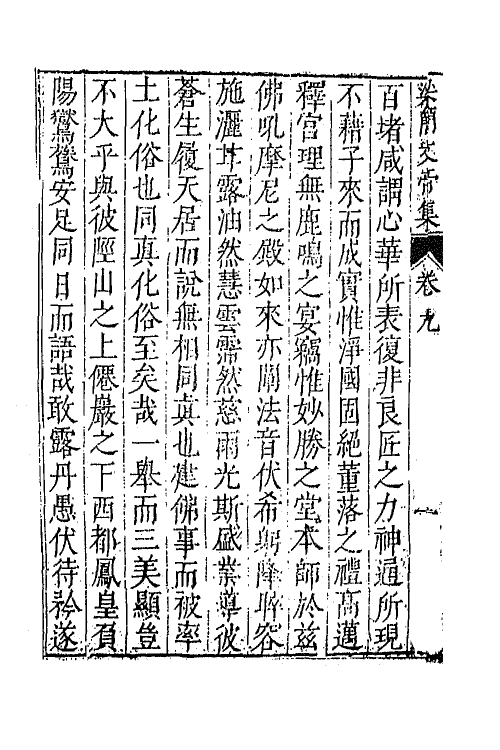 梁簡文帝集 卷九 一
百堵咸謂心華所表復非良匠之力神通所現
不藉子來而成實惟淨國固絕董落之禮高邁
釋宮理無鹿鳴之宴竊惟妙勝之堂本師於茲
佛吼摩尼之殿如來亦闡法音伏希躬降睟容
施灑甘露油然慧雲霈然慈雨光斯盛業導彼
蒼生履天居而說無相同真也建佛事而被率
土化俗也同真化俗至矣哉一舉而三美顯豈
不大乎與彼陘山之上僊巖之下西都鳳皇負
陽鸑鷟安足同日而語哉敢露丹愚伏待矜遂